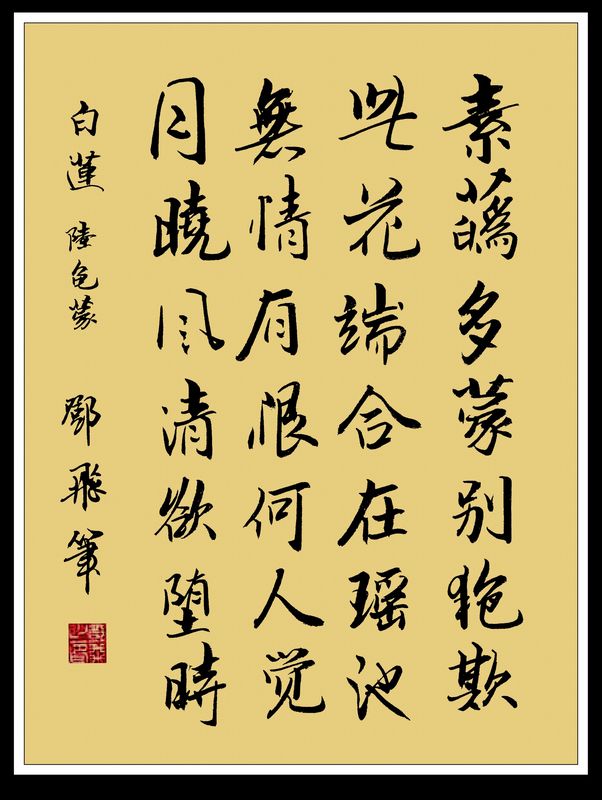 素蘤多蒙别艳欺
此花端合在瑶池
無情有恨何人觉
月曉风清欲堕時
白蓮 陸龟蒙 鄧飛筆